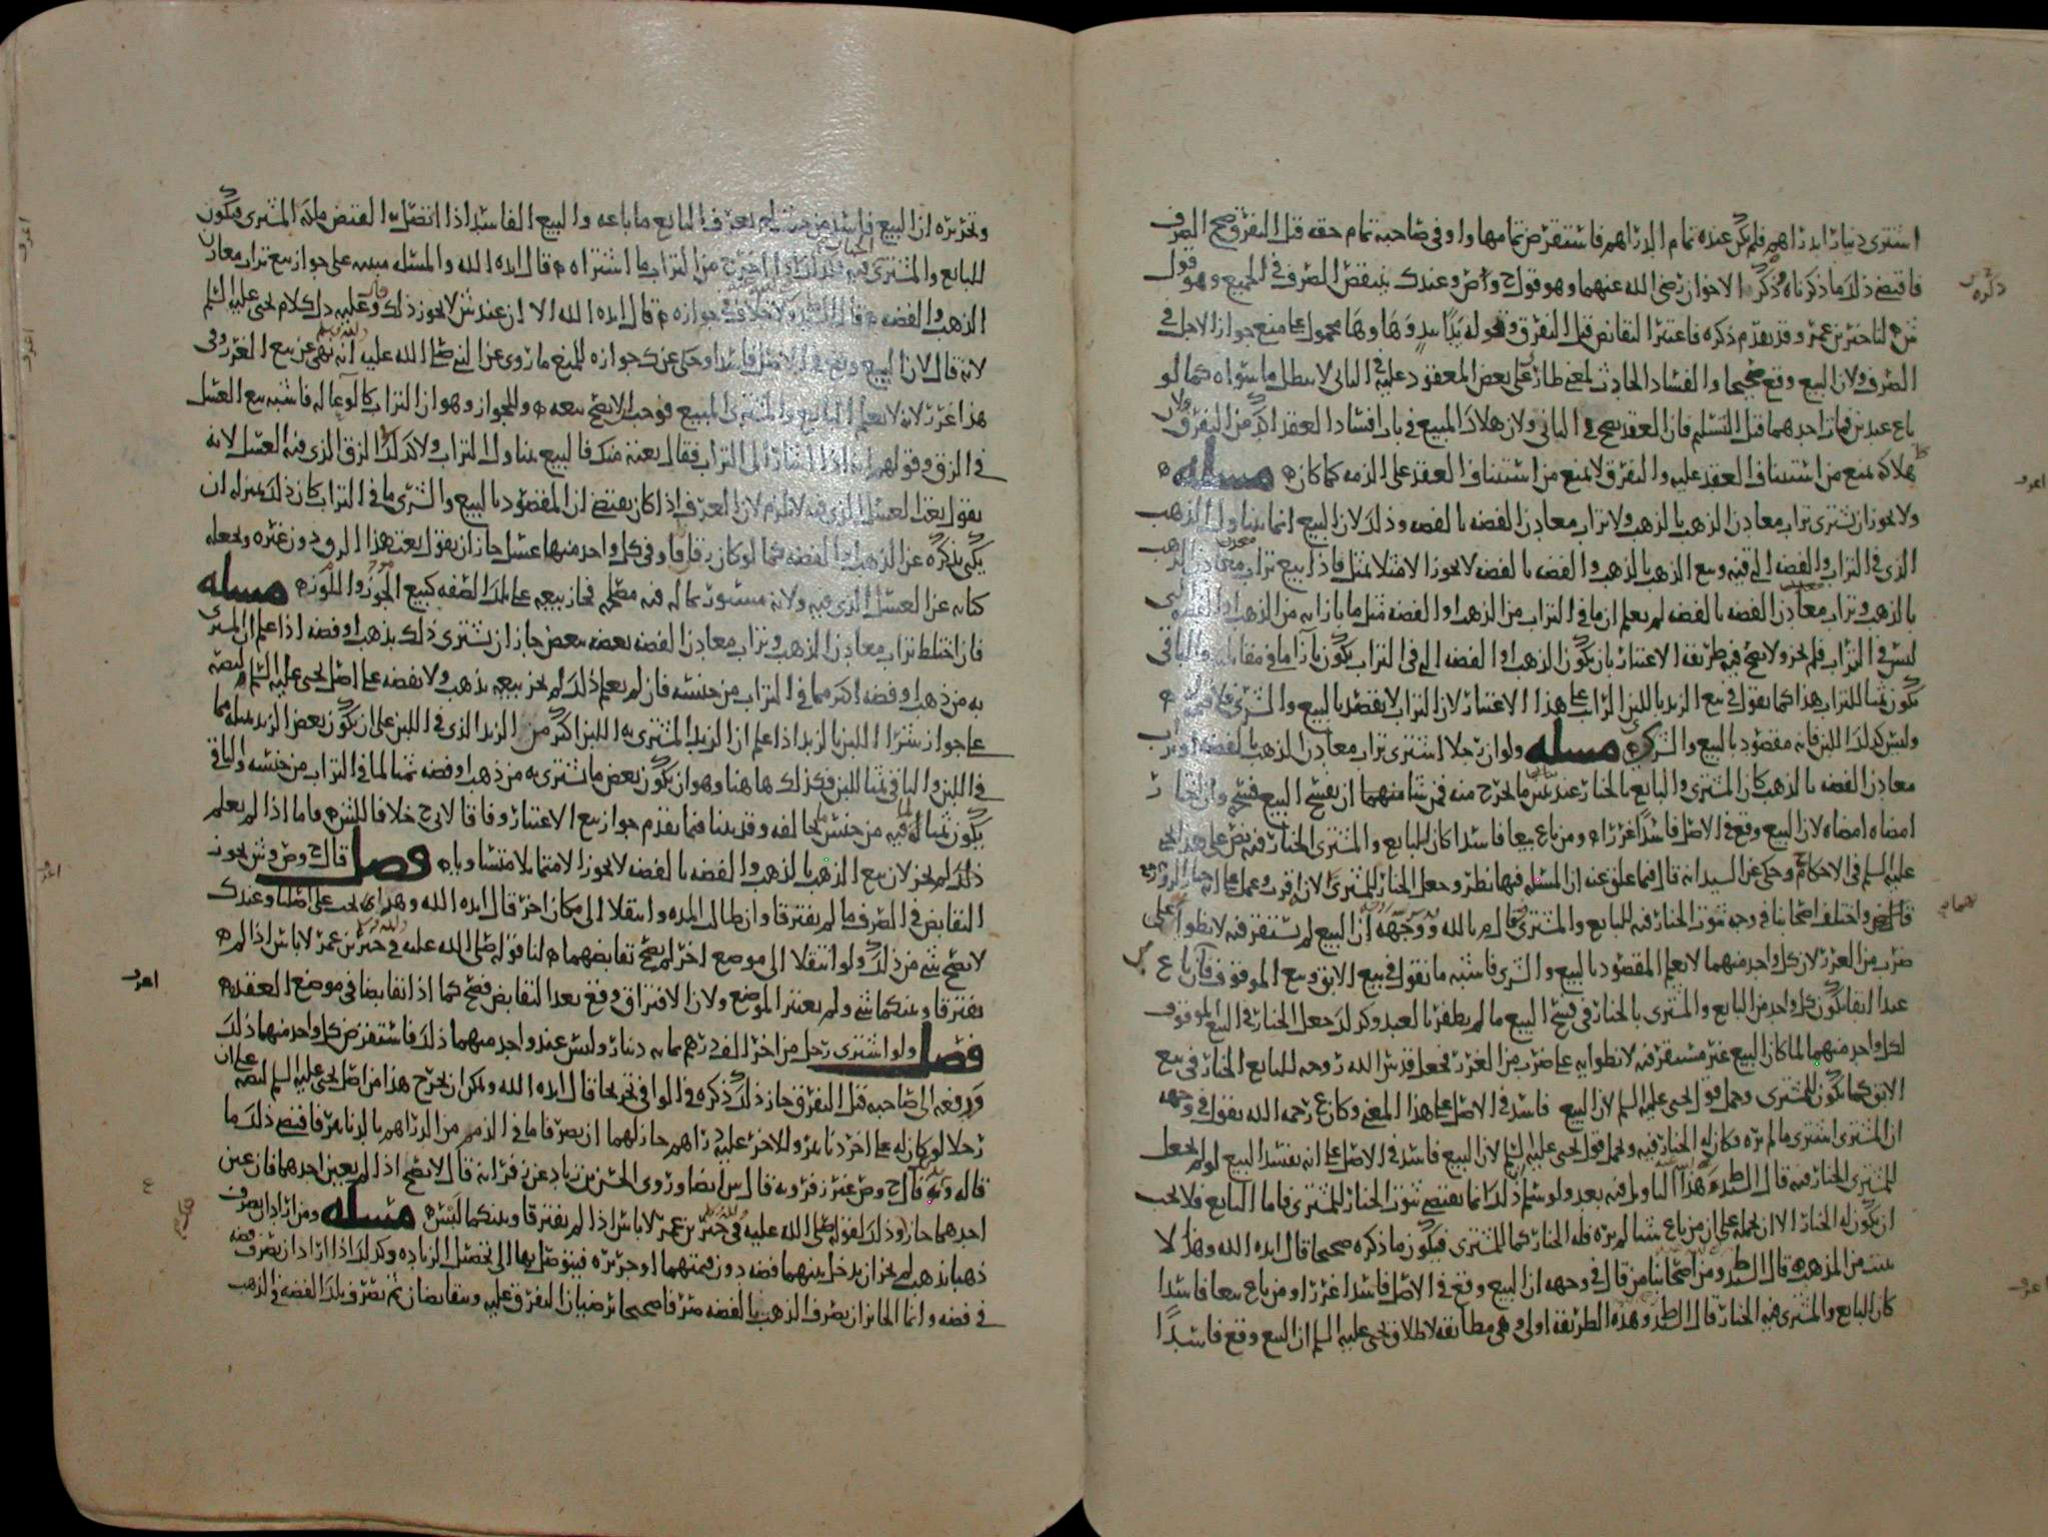 اشترى دينارا بدراهم فلم يكن عنده تمام الدراهم فاستقرض تمامها واوفى صاحبه تمام حقه قبل التفرق صح الصرف
فاقتضى ذلك ما ذكرناه وذكر الاخوان رضى الله عنهما وهو قول ح وص وعند ك ينتقض الصرف في الجميع وهو قول
ش لنا خبر بن عمر وقد تقدم ذكره فاعتبر التقابض قبل التفرق وقوله يدا بيد وها وها محمول على منع جواز الاجل في
الصرف ولان البيع وقع صحيحا والفساد الحادث لمعنى طار على بعض المعقود عليه في الثاني لا يبطل ما سواه كما لو
باع عبدين فمات احدهما قبل التسليم فان العقد يصح في الباقي ولان هلاك المبيع في باب افساد العقد اكد من التفرق ولان
هلاكه يمنع من استيناف العقد عليه والتفرق لا يمنع من استيناف العقد على الذمه كما كان مسله
ولا يجوز ان يشترى تراب معادن الذهب بالذهب ولا تراب معادن الفضه بالفضه وذلك لان البيع انما يتناول الذهب
الذي في التراب والفضه التي فيه وبيع الذهب بالذهب والفضه بالفضه لا يجوز الا مثلا بمثل فاذا بيع تراب معادن الذهب
بالذهب وتراب معادن الفضه بالفضه لم يعلم ان ما في التراب من الذهب او الفضه مثل ما بازايه من الذهب او الفضه التي
ليس في التراب فلم يجز ولا يصح فيه طريقه الاعتبار بان يكون الذهب او الفضه التي في التراب يكون بازا ما في مقابلته والباقي
يكون ثمنا للتراب هذا كما نقول في بيع الزبد باللبن الرايب على هذا الاعتبار لان التراب لا يقصد بالبيع والشرى فلا قيمه له
وليس كذلك اللبن فانه مقصود بالبيع والشرى مسله ولو ان رجلا اشترى تراب معادن الذهب بالفضه او تراب
معادن الفضه بالذهب كان المشترى والبايع بالخيار عند تبين ما يخرج منه فمن شا منهما ان يفسخ البيع فسخ وان اختار
امضاه امضاه لان البيع وقع في الاصل فاسدا غررا ومن باع بيعا فاسدا كان للبايع والمشترى الخيار فيه نص على هذا يحيى
عليه السلم في الاحكام وحكى عن السيد انه قال فيما علق عنه ان المسله فيها نظر وجعل الخيار للمشترى الا ان
واختلف اصحابنا في وجه ثبوت الخيار فيه للبايع والمشترى قال م بالله ووجهه ان البيع لم يستقر فيه لانطوايه على
ضرب من الغرر لان كل واحد منهما لا يعلم المقصود بالبيع والشرى فاشبه ما نقول في بيع الابق وبيع الموقوف فان باع
عبدا ابقا يكون كل واحد من البايع والمشترى بالخيار في فسخ البيع ما لم يظفر بالعبد وكذلك جعل الخيار في البيع الموقوف
لكل واحد منهما لما كان البيع غير مستقر فيه لانطوايه على ضرب من الغرر فجعل قدس الله روحه للبايع الخيار في بيع
الابق كما يكون للمشترى وحمل قول يحيى عليه السلم لان البيع فاسد في الاصل على هذا المعنى وكان ع رحمه الله يقول في وجهه
ان المشترى اشترى ما لم يره فكان له الخيار فيه وتحمل قول يحيى عليه السلم لان البيع فاسد في الاصل على انه يفسد البيع لو لم يجعل
للمشترى الخيار فيه قال ط وهذا التاويل فيه بعد ولو سلم ذلك انما يقتضى ثبوت الخيار للمشترى فاما البايع فلا يجب
ان يكون له الخيار الا ان يحمله على ان من باع شيا لم يره فله الخيار كما للمشترى فيكون ما ذكره صحيحا قال ايده الله وهذا لا
يثبت من المذهب قال السيد ط ومن اصحابنا من قال في وجهه ان البيع وقع في الاصل فاسدا غررا ومن باع بيعا فاسدا
كان البايع والمشترى فيه الخيار قال السيد ط وهذه الطريقه اولى وهي مطابقه لاطلاق يحيى عليه السلم ان البيع وقع فاسدا
وتحريره ان البيع فاسد من حيث لم يعرف البايع ما باعه والبيع الفاسد اذا اتصل به القبض ملكه المشترى فيكون
للبايع والمشترى فيه الخيار اذا اخرج من التراب ما اشتراه قال ايده الله والمسله مبنيه على جواز بيع تراب معادن
الذهب والفضه قال السيد ط ولا خلاف في جوازه قال ايده الله الا ان عند ش لا يجوز ذلك وعليه دل كلام يحيى عليه السلم
لانه قال لان البيع وقع في الاصل فاسدا وحكى عن ك جوازه للمنع ما روى عن النبي صلى الله عليه انه نهى عن بيع الغرر وفي
هذا غرر لانه لا يعلم البايع والمشترى المبيع فوجب الا يصح بيعه وللجواز وهو ان التراب كالوعا له فاشبه بيع العسل
في الزق وقولهم انه اذا اشار الى التراب فقال بعته منك فالبيع يتناول التراب ولا كذلك الزق الذي فيه العسل لانه
يقول بعت العسل الذي فيه لا يلزم لان العرف اذا كان يقتضى ان المقصود بالبيع والشرى ما في التراب كان ذلك بمنزله ان
يكنى بذكره عن الذهب او الفضه كما لو كان زقاقا وفي كل واحد منها عسل جاز ان يقول بعت هذا الزق دون غيره ويجعله
كنايه عن العسل الذي فيه ولانه مستور بما له فيه مصلحه فجاز بيعه على تلك الصفه كبيع الجوز واللوز مسله
فان اختلط تراب معادن الذهب وتراب معادن الفضه بعضه ببعض جاز ان يشترى ذلك بذهب او فضه اذا علم ان المشترى
به من ذهب او فضه اكثر مما في التراب من جنسه فان لم يعلم ذلك لم يجز بيعه بذهب ولا بفضه على اصل يحيى عليه السلم لنصه
على جواز شرا اللبن بالزبد اذا علم ان الزبد المشترى به اللبن اكثر من الزبد الذي في اللبن على ان يكون بعض الزبد بمثله مما
في اللبن والباقي ثمنا للبن فكذلك هاهنا وهو ان يكون بعض ما يشترى به من ذهب او فضه ثمنا لما في التراب من جنسه والباقي
يكون ثمنا لما فيه من جنس مخالفه وقد بينا فيما تقدم جواز بيع الاعتبار وفاقا لابى ح خلافا لش فاما اذا لم يعلم
ذلك لم يجز لان بيع الذهب بالذهب والفضه بالفضه لا يجوز الا متماثلا متساويا فصل قال ح وص وش يجوز
التقابض في الصرف ما لم يفترقا وان طالت المده وانتقلا الى مكان اخر قال ايده الله وهذا يجب على اصلنا وعند ك
لا يصح شي من ذلك ولو انتقلا الى موضع اخر لم يصح تقابضهما لنا قوله صلى الله عليه في خبر بن عمر لا باس اذا لم
يفترقا وبينكما شي ولم يعتبر الموضع ولان الافتراق وقع بعد التقابض فصح كما اذا تقابضا في موضع العقد
فصل ولو اشترى رجل من اخر الف درهم بمايه دينار وليس عند واحد منهما ذلك فاستقرض كل واحد منهما ذلك
ودفعه الى صاحبه قبل التفرق جاز ذلك ذكره في الوافي تخريجا قال ايده الله ويمكن ان يخرج هذا من اصل يحيى عليه السلم لنصه على ان
رجلا لو كان له على اخر دنانير وللاخر عليه دراهم جاز لهما ان يصرفا ما في الذمم من الدراهم بالدنانير فاقتضى ذلك ما
قاله وبه قال ح وص غير زفر وبه قال س ايضا وروى الحسن بن زياد عن زفر انه قال لا يصح اذا لم يعين احدهما فان عين
احدهما جاز وذلك لقوله صلى الله عليه في خبر بن عمر لا باس اذا لم يفترقا وبينكما لبس مسله ومن اراد ان يصرف
ذهبا بذهب لم يجز ان يدخل بينهما فضه دون قيمتهما او جريره فيتوصل بها الى تحصيل الزياده وكذلك اذا اراد ان يصرف فضه
في فضه وانما الجايز ان يصرف الذهب بالفضه صرفا صحيحا يرضيان التفرق عليه ويتقابضان ثم يصرف بتلك الفضه في الذهب